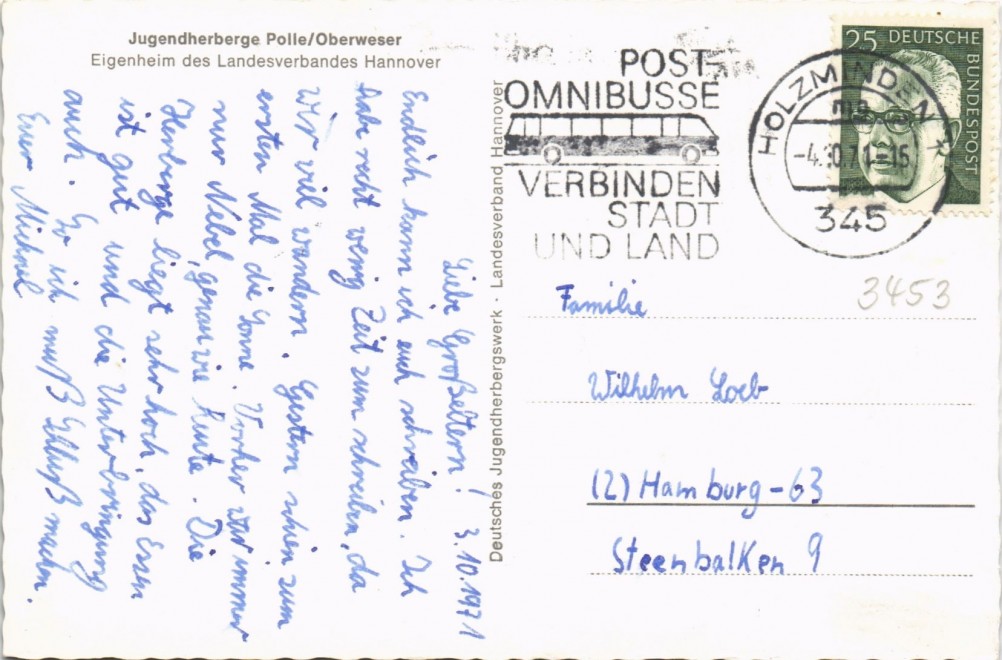 Jugendherberge Polle/Oberweser
Eigenheim des Landesverbandes Hannover
Liebe Großeltern! 3.10.1971
Endlich kann ich euch schreiben. Ich
habe recht wenig Zeit zum schreiben, da
wir viel wandern. Gestern schien zum
ersten Mal die Sonne. Vorher war immer
nur Nebel, genau wie heute. Die
Herberge liegt sehr hoch, das Essen
ist gut und die Unterbringung
auch. So ich muß Schluß machen.
Euer Michael
Deutsches Jugendherbergswerk · Landesverband Hannover
POST-
OMNIBUSSE
VERBINDEN
STADT
UND LAND
HOLZMINDEN
-4.10.71-15
345
25 DEUTSCHE
BUNDESPOST
3453
Familie
Wilhelm Loeb
(2) Hamburg-63
Steenbalken 9